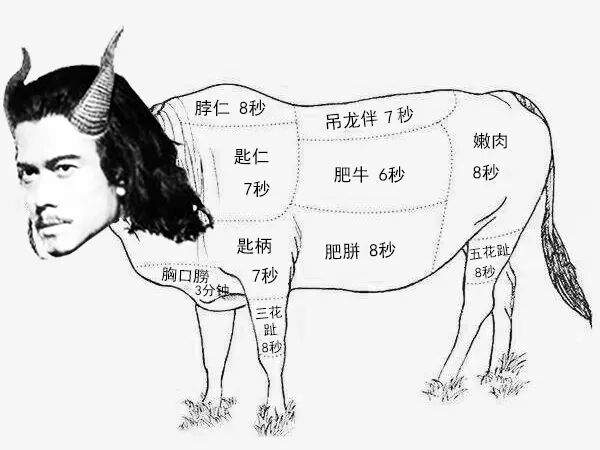 脖仁 8秒
吊龙伴 7秒
匙仁
7秒
肥牛 6秒
嫩肉
8秒
匙柄
7秒
肥胼 8秒
五花趾
8秒
胸口朥
3分钟
三花
趾
8秒